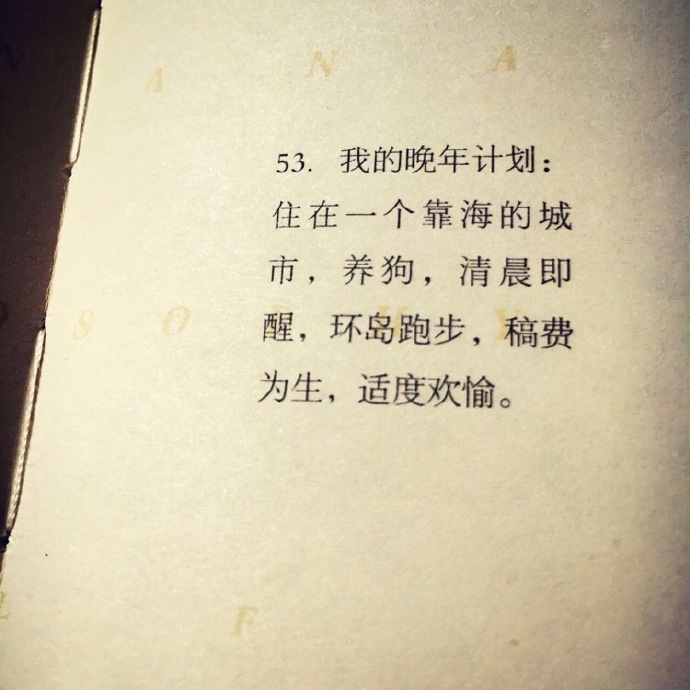 A N A
53. 我的晚年计划：
住在一个靠海的城
市，养狗，清晨即
醒，环岛跑步，稿费
为生，适度欢愉。
S O Y
L F